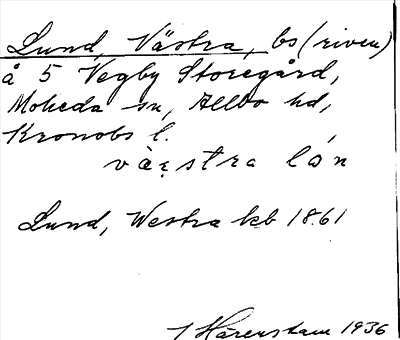 Lund, Västra, bs (riven)
å 5 Vegby Storegård,
Moheda sn, Allbo hd,
Kronobs l.
væ̀stra lón
Lund, Westra kb 1861
J Härenstam 1936